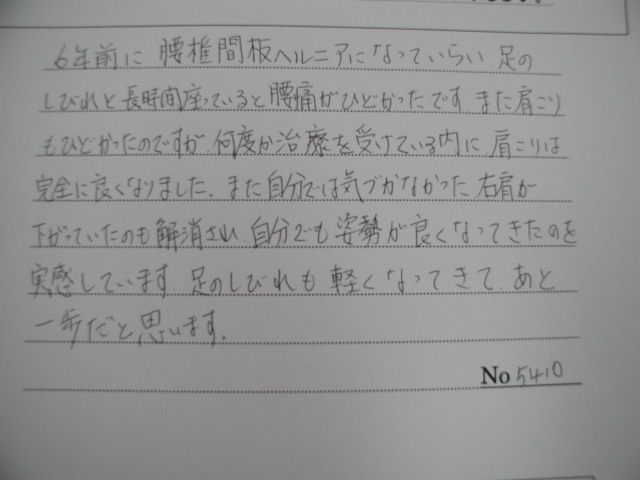 6年前に 腰椎間板ヘルニアになっていらい 足の
しびれと長時間座っていると腰痛がひどかったです また肩こり
もひどかったのですが 何度か治療を受けている内に 肩こりは
完全に良くなりました、また自分では気づかなかった 右肩が
下がっていたのも解消され、自分でも姿勢が良くなってきたのを
実感しています 足のしびれも 軽くなってきて、あと
一歩だと思います.
No 5410